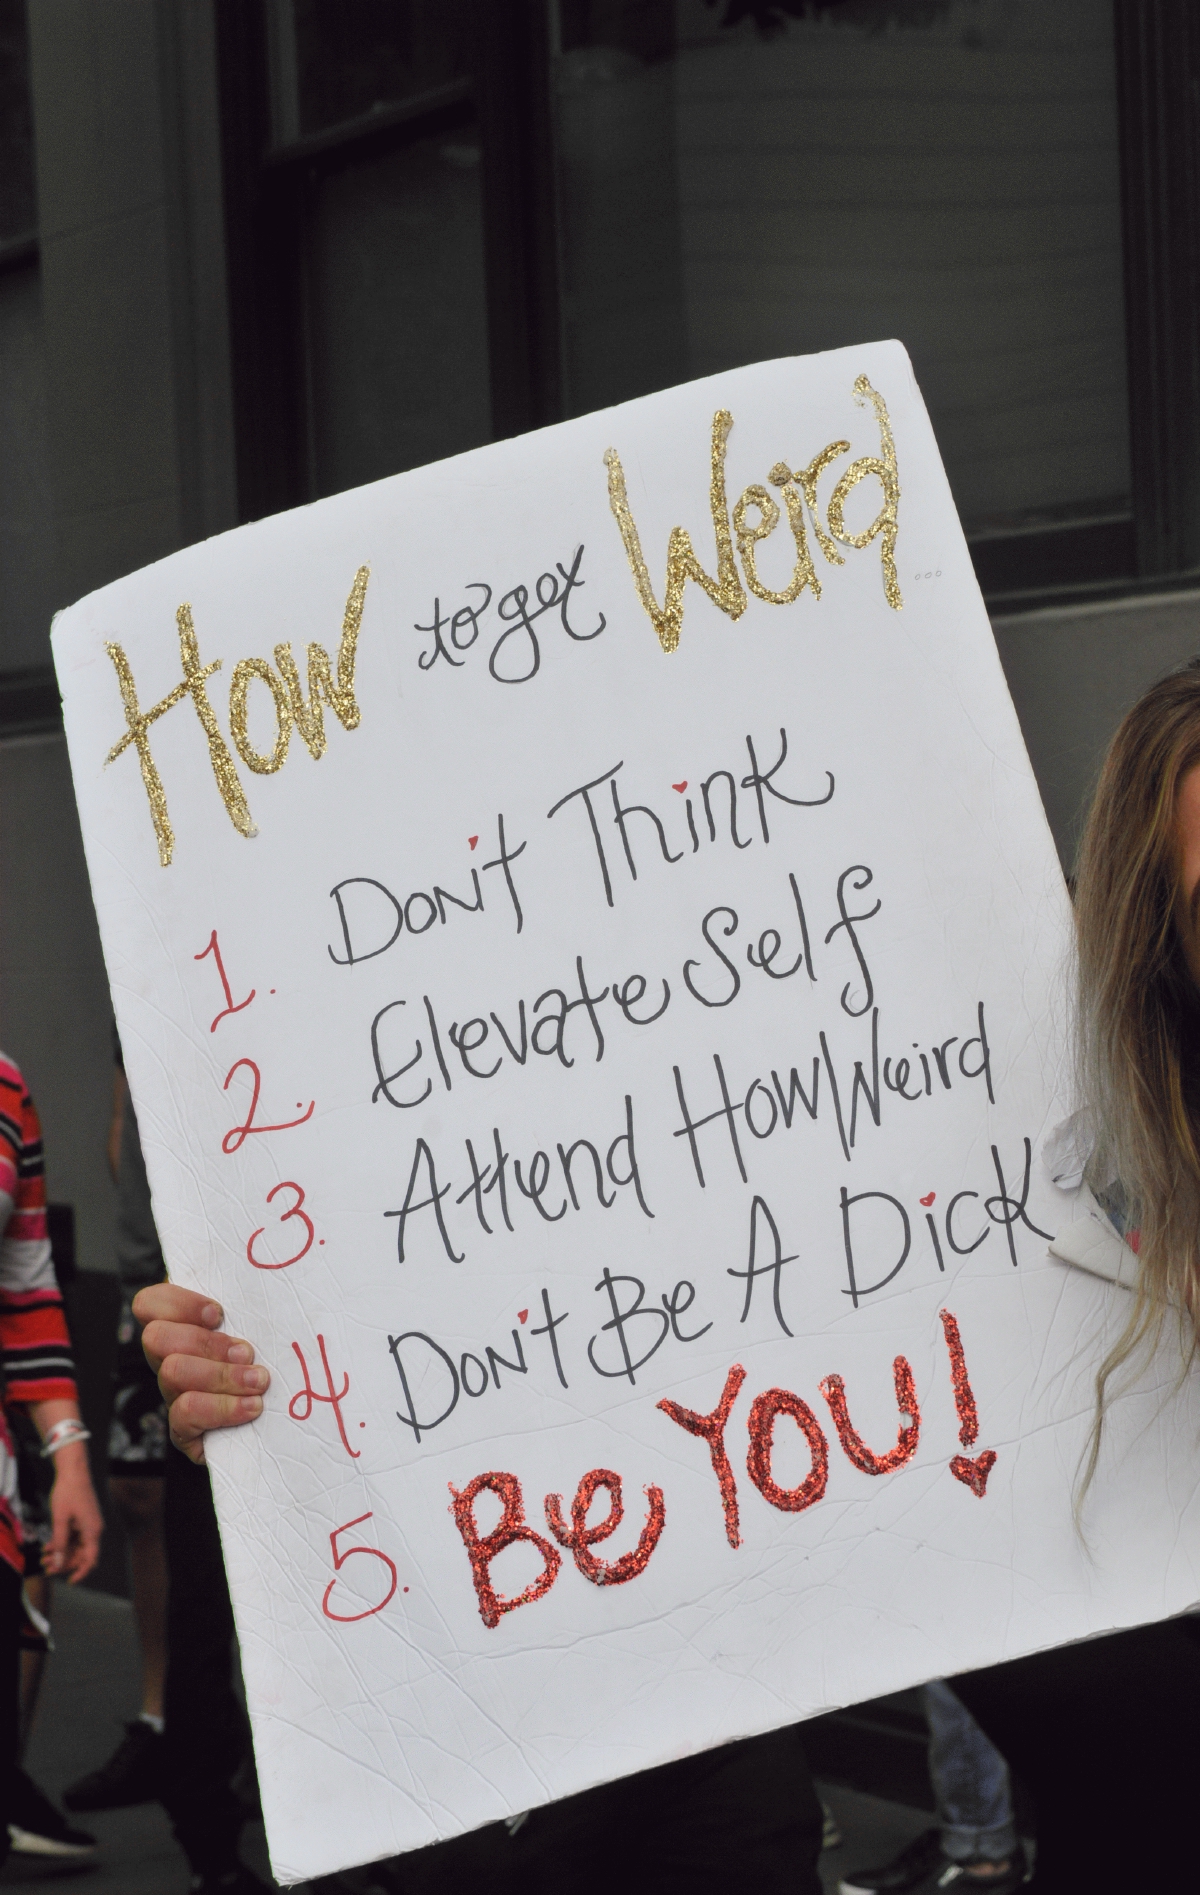 How to get Weird...
1. Don't Think
2. Elevate Self
3. Attend How Weird
4. Don't Be A Dick
5. Be YOU!